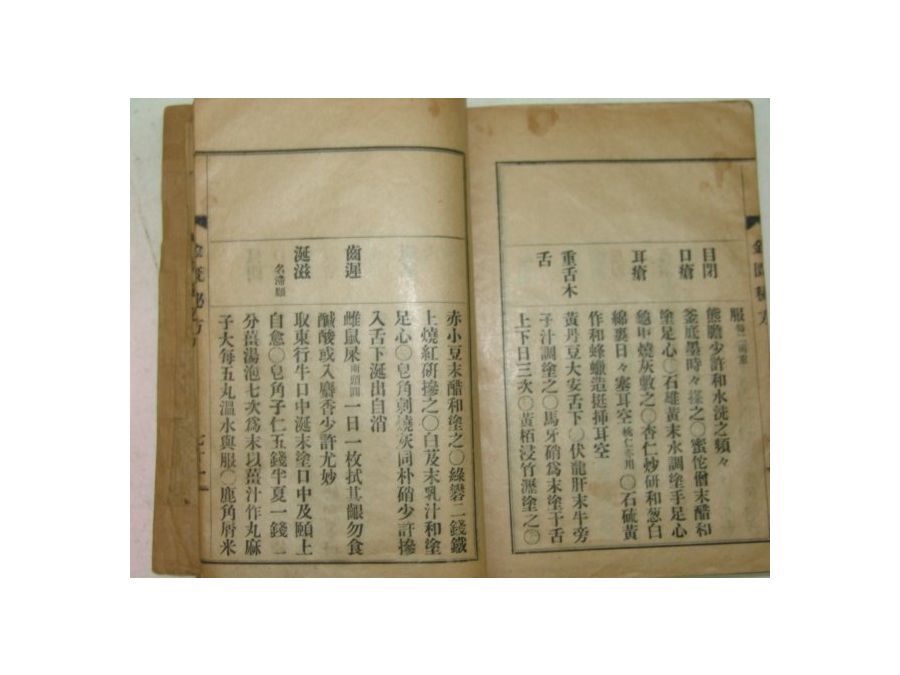 服
目閉 熊膽少許和水洗之頻々
口瘡 釜底墨時々搽之〇蜜佗僧末醋和
塗足心〇石雄黃末水調塗手足心
耳瘡 龜甲燒灰敷之〇杏仁炒硏和葱白
綿裹日々塞耳空桃仁亦用〇石硫黃
作和蜂蠟造挺揷耳空
重舌木 黃丹豆大安舌下〇伏龍肝末牛旁
舌 子汁調塗之〇馬牙硝爲末塗于舌
上下日三次〇黃栢浸竹瀝塗之〇
赤小豆末醋和塗之〇綠礬二錢鐵
上燒紅硏摻之〇白芨末乳汁和塗
足心〇皂角刺燒灰同朴硝少許摻
入舌下涎出自消
齒遲 雌鼠屎兩頭圓一日一枚拭其齦勿食
醎酸或入麝香少許尤妙
涎滋名滯頤 取東行牛口中涎末塗口中及頤上
自愈〇皂角子仁五錢半夏一錢二
分薑湯泡七次爲末以薑汁作丸麻
子大每五丸溫水與服〇鹿角屑米